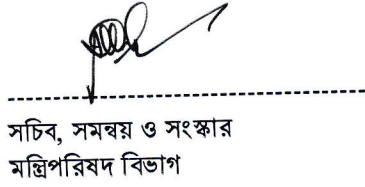 সচিব, সমন্বয় ও সংস্কার
মন্ত্রিপরিষদ বিভাগ